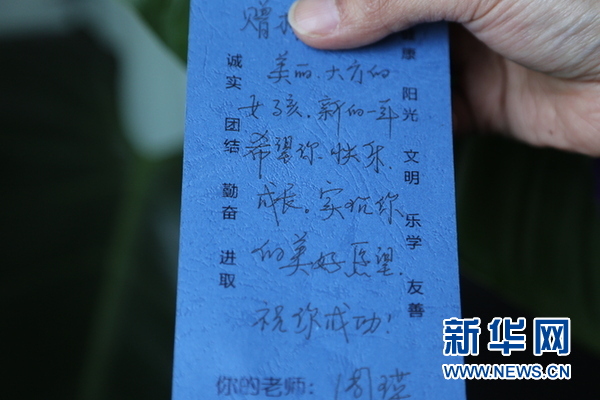 赠
美丽、大方的
女孩。新的一年
希望你快乐
成长。实现你
的美好愿望。
祝你成功!
你的老师: 周瑛
诚实 团结 勤奋 进取
康 阳光 文明 乐学 友善
新华网
WWW.NEWS.CN